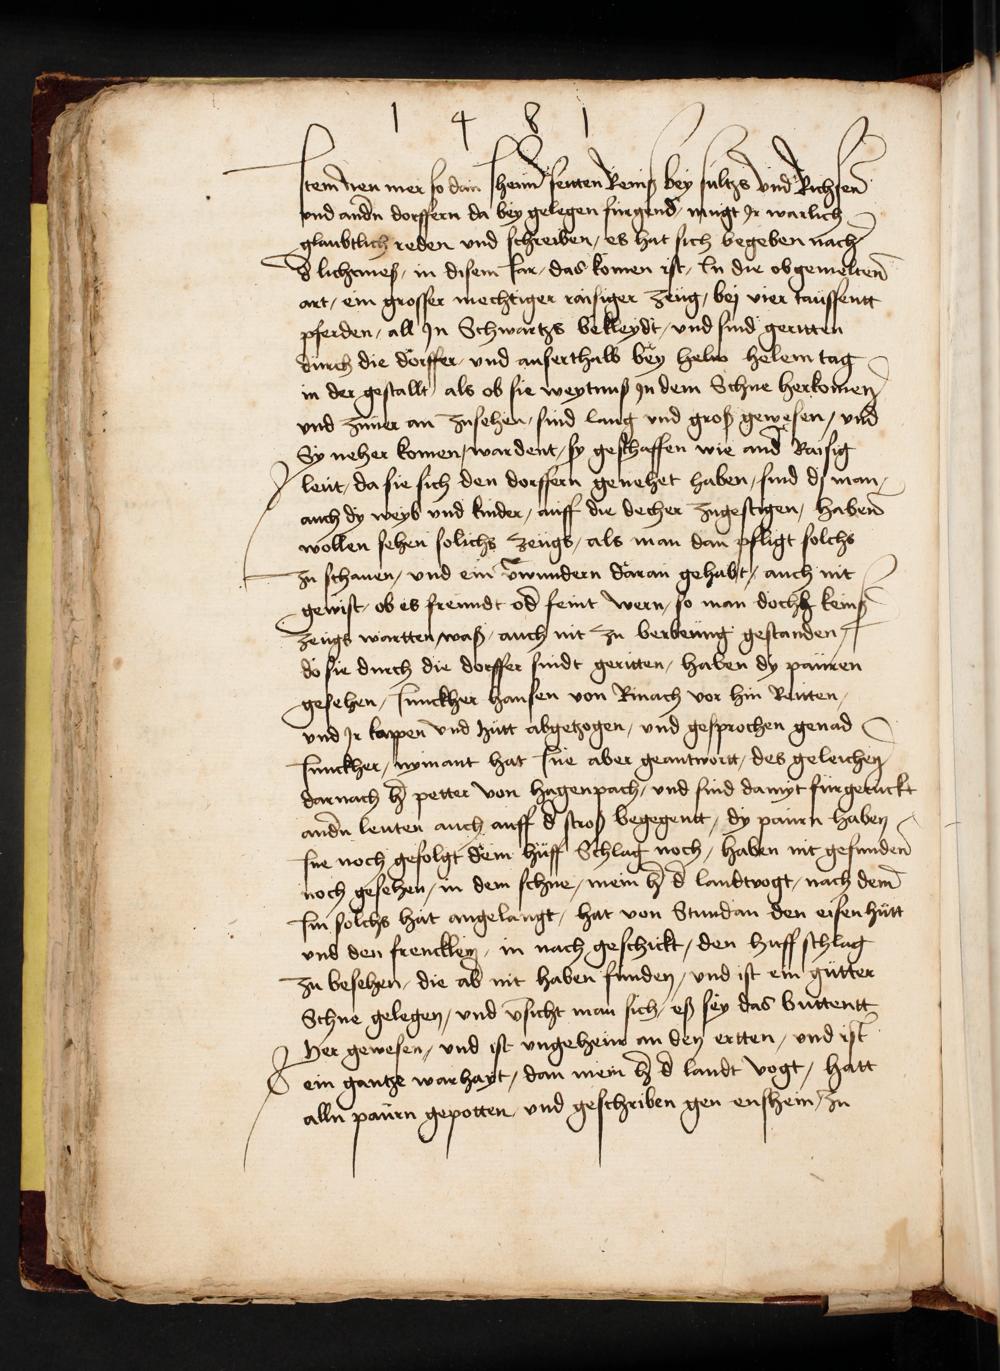 1 4 8 1
Item nen mer so dan Jhenn senten Reniß bey sultzs vnd Richsen
vnd andn dorffern da bey gelegen furgend mugt Jr warlich
glaubtlich reden vnd schreiben / es hat sich begeben nach
d lichtmeß / in disem Iar / das komen ist / In die obgemelten
art / ein grosser mechtiger raisiger zeug / bej vier taussentt
pferden / all Jn Schwartzs bekleydt / vnd sind geritten
durch die dorffer / vnd auserthalb bey helem tag
in der gestallt / als ob sie Jn dem Schne herkomen
vnd an zusehen / sind lang vnd groß gewesen / vnd
Sy neher komen / wardent / sy geschaffen wie and Raisig
leut / da sie sich den dorffern genehet haben / sind dj man /
auch dy weyb vnd kinder / auff die decher zugestigen / haben
wollen sehen solichs zeugs / als man dan pfligt solchs
zu schauen / vnd ein vwundern daran gehabt / auch nit
gewist / ob es freundt od feint wern / so man doch keinß
zeugs wartten waß / auch nit zu gestanden /
do sie durch die dorffer sindt geritten / haben dy pauren
gesehen / Junckher hansen von Rinach vor hin Reitten /
vnd Jr kappen vnd hutt abgezogen / vnd gesprochen genad
Junckher / nymant hat Ine aber geantwortt / des geleichen
darnach h petter von hagenpach / vnd sind damyt furgeruckt
andn leuten auch auff d stroß begegentt / dy paurn haben
Ine noch gefolgt dem huff Schlag noch / haben nit gefunden
noch gesehen / in dem schne / mein h d landtvogt / nach dem
Im solchs hat angelangt / hat von Stundan den eisenhutt
vnd den frencklein / in nach geschickt / den huff schlag
zu besehen / die ab nit haben funden / vnd ist ein gutter
Schne gelegen / vnd vsicht man sich / eß sey das wuttentt
her gewesen / vnd ist vngeheur an den ertten / vnd ist
ein gantze warhayt / dan mein h d landt vogt / hatt
alln paurn gepotten vnd geschriben gen ensheim / zu